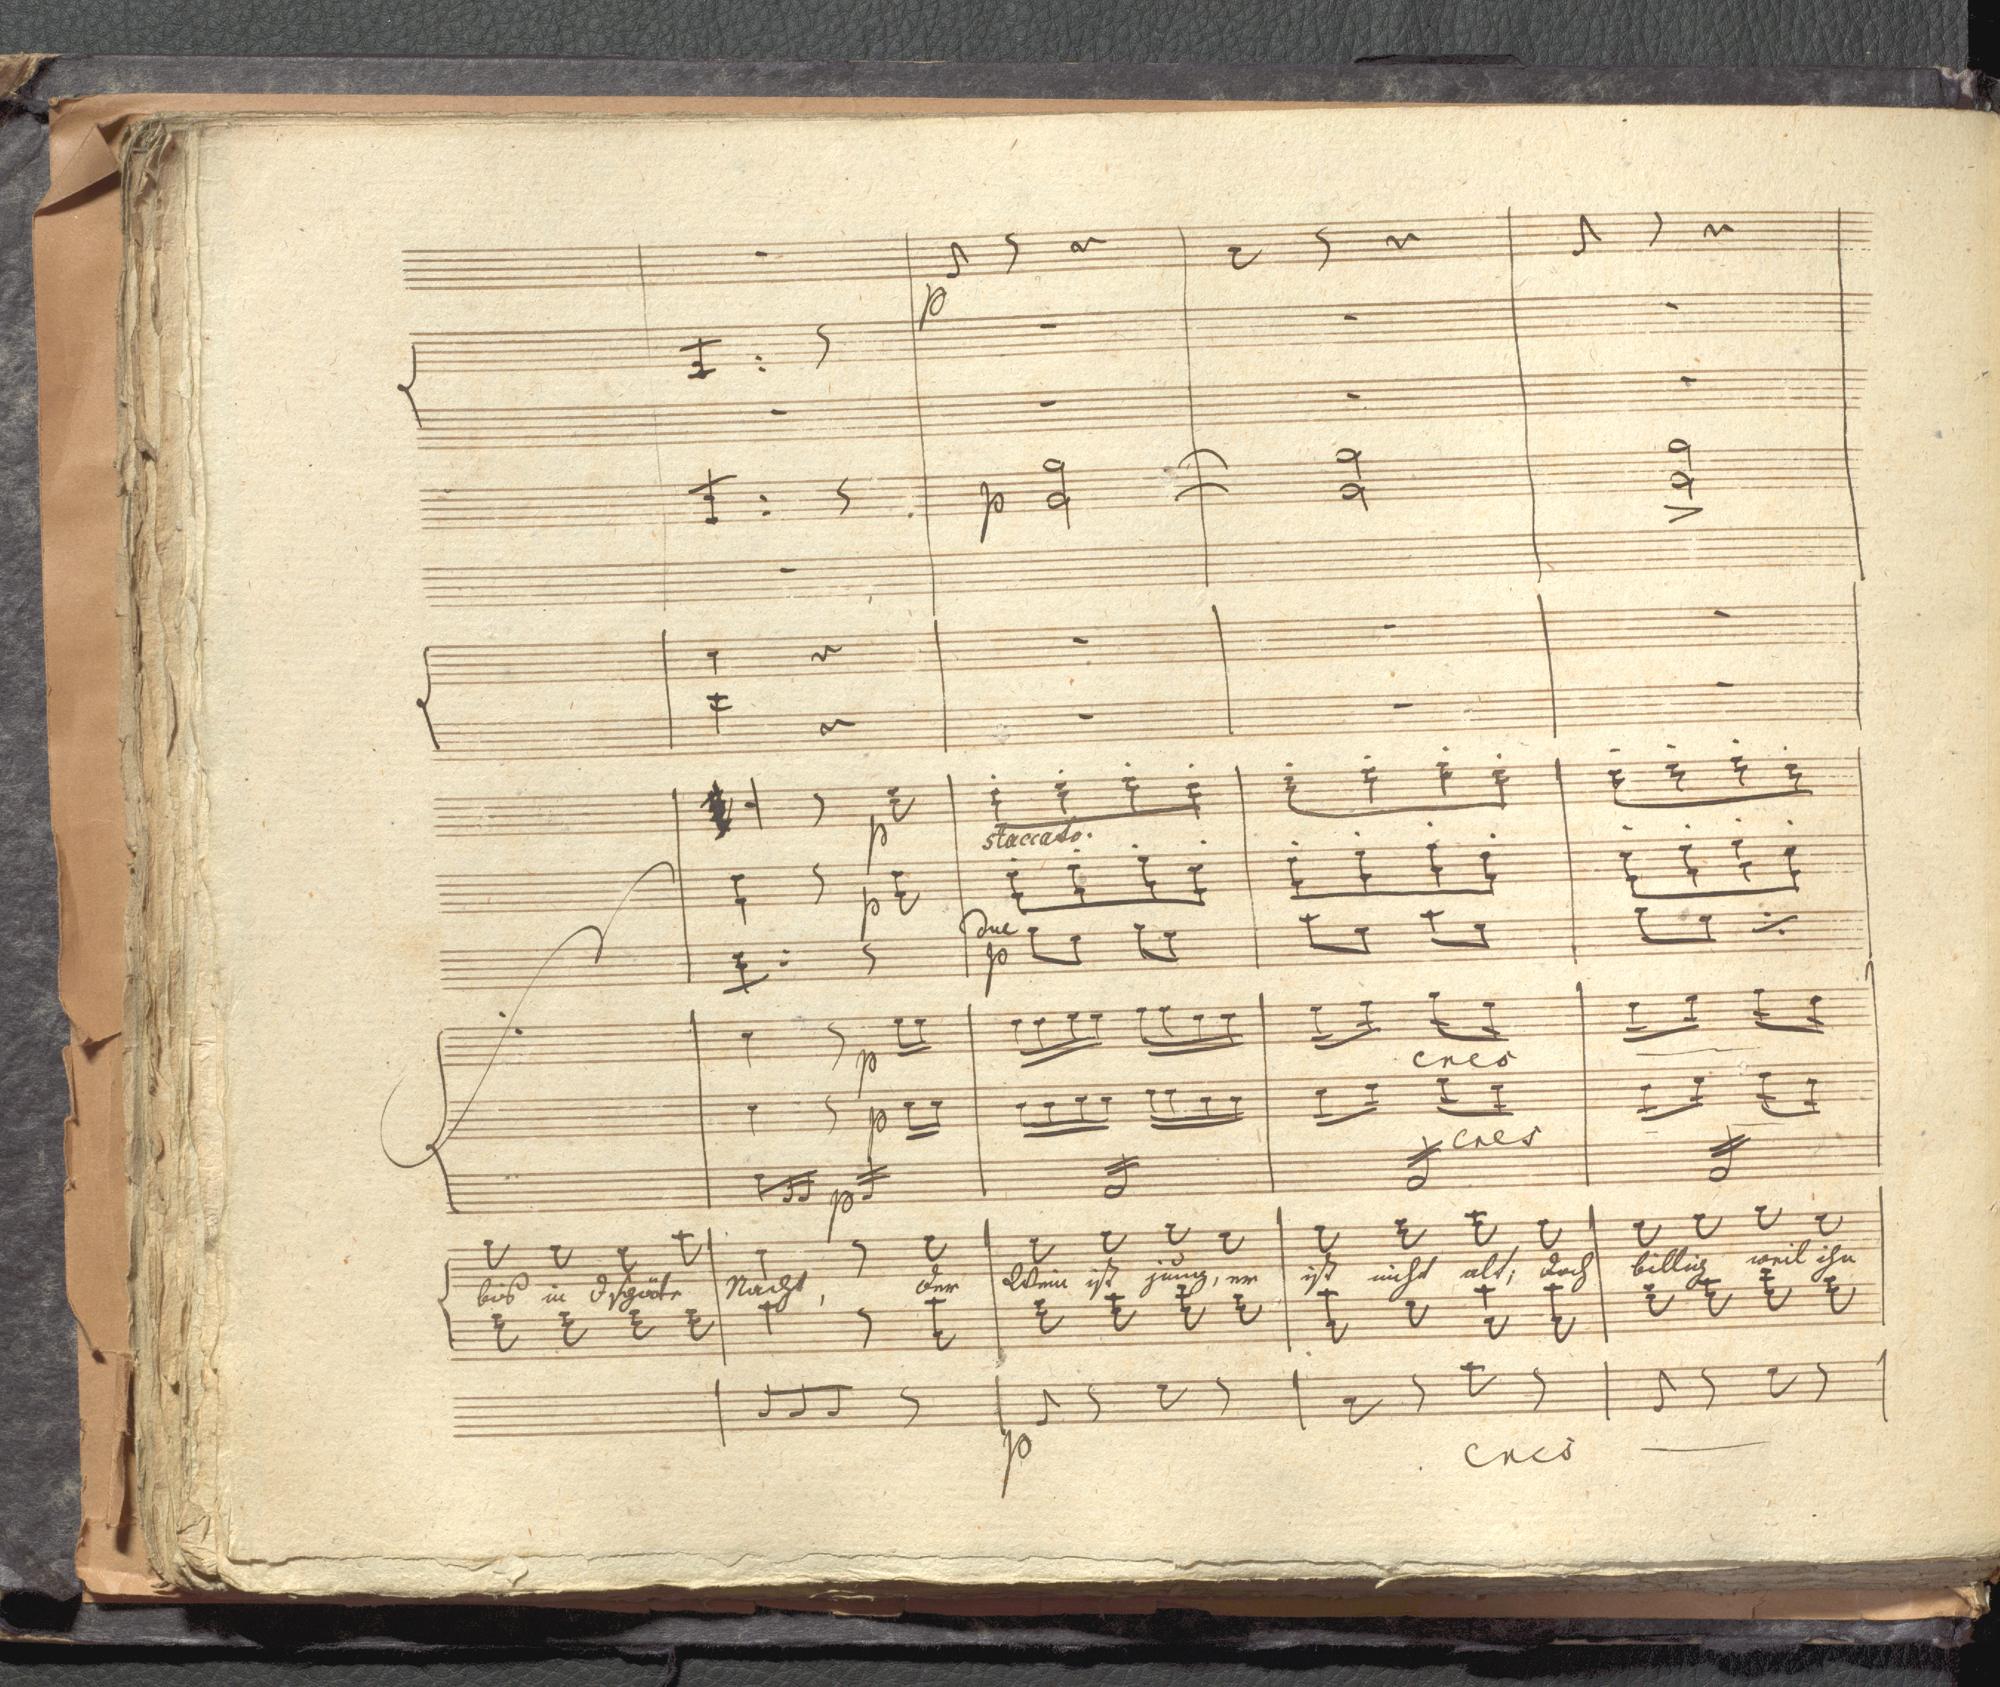 p
p
p
staccato.
p
due
p
p
cres
p
cres
p
bis in d'späte Nacht, der Wein ist jung, er ist nicht alt; doch billig weil ihn
p
cres